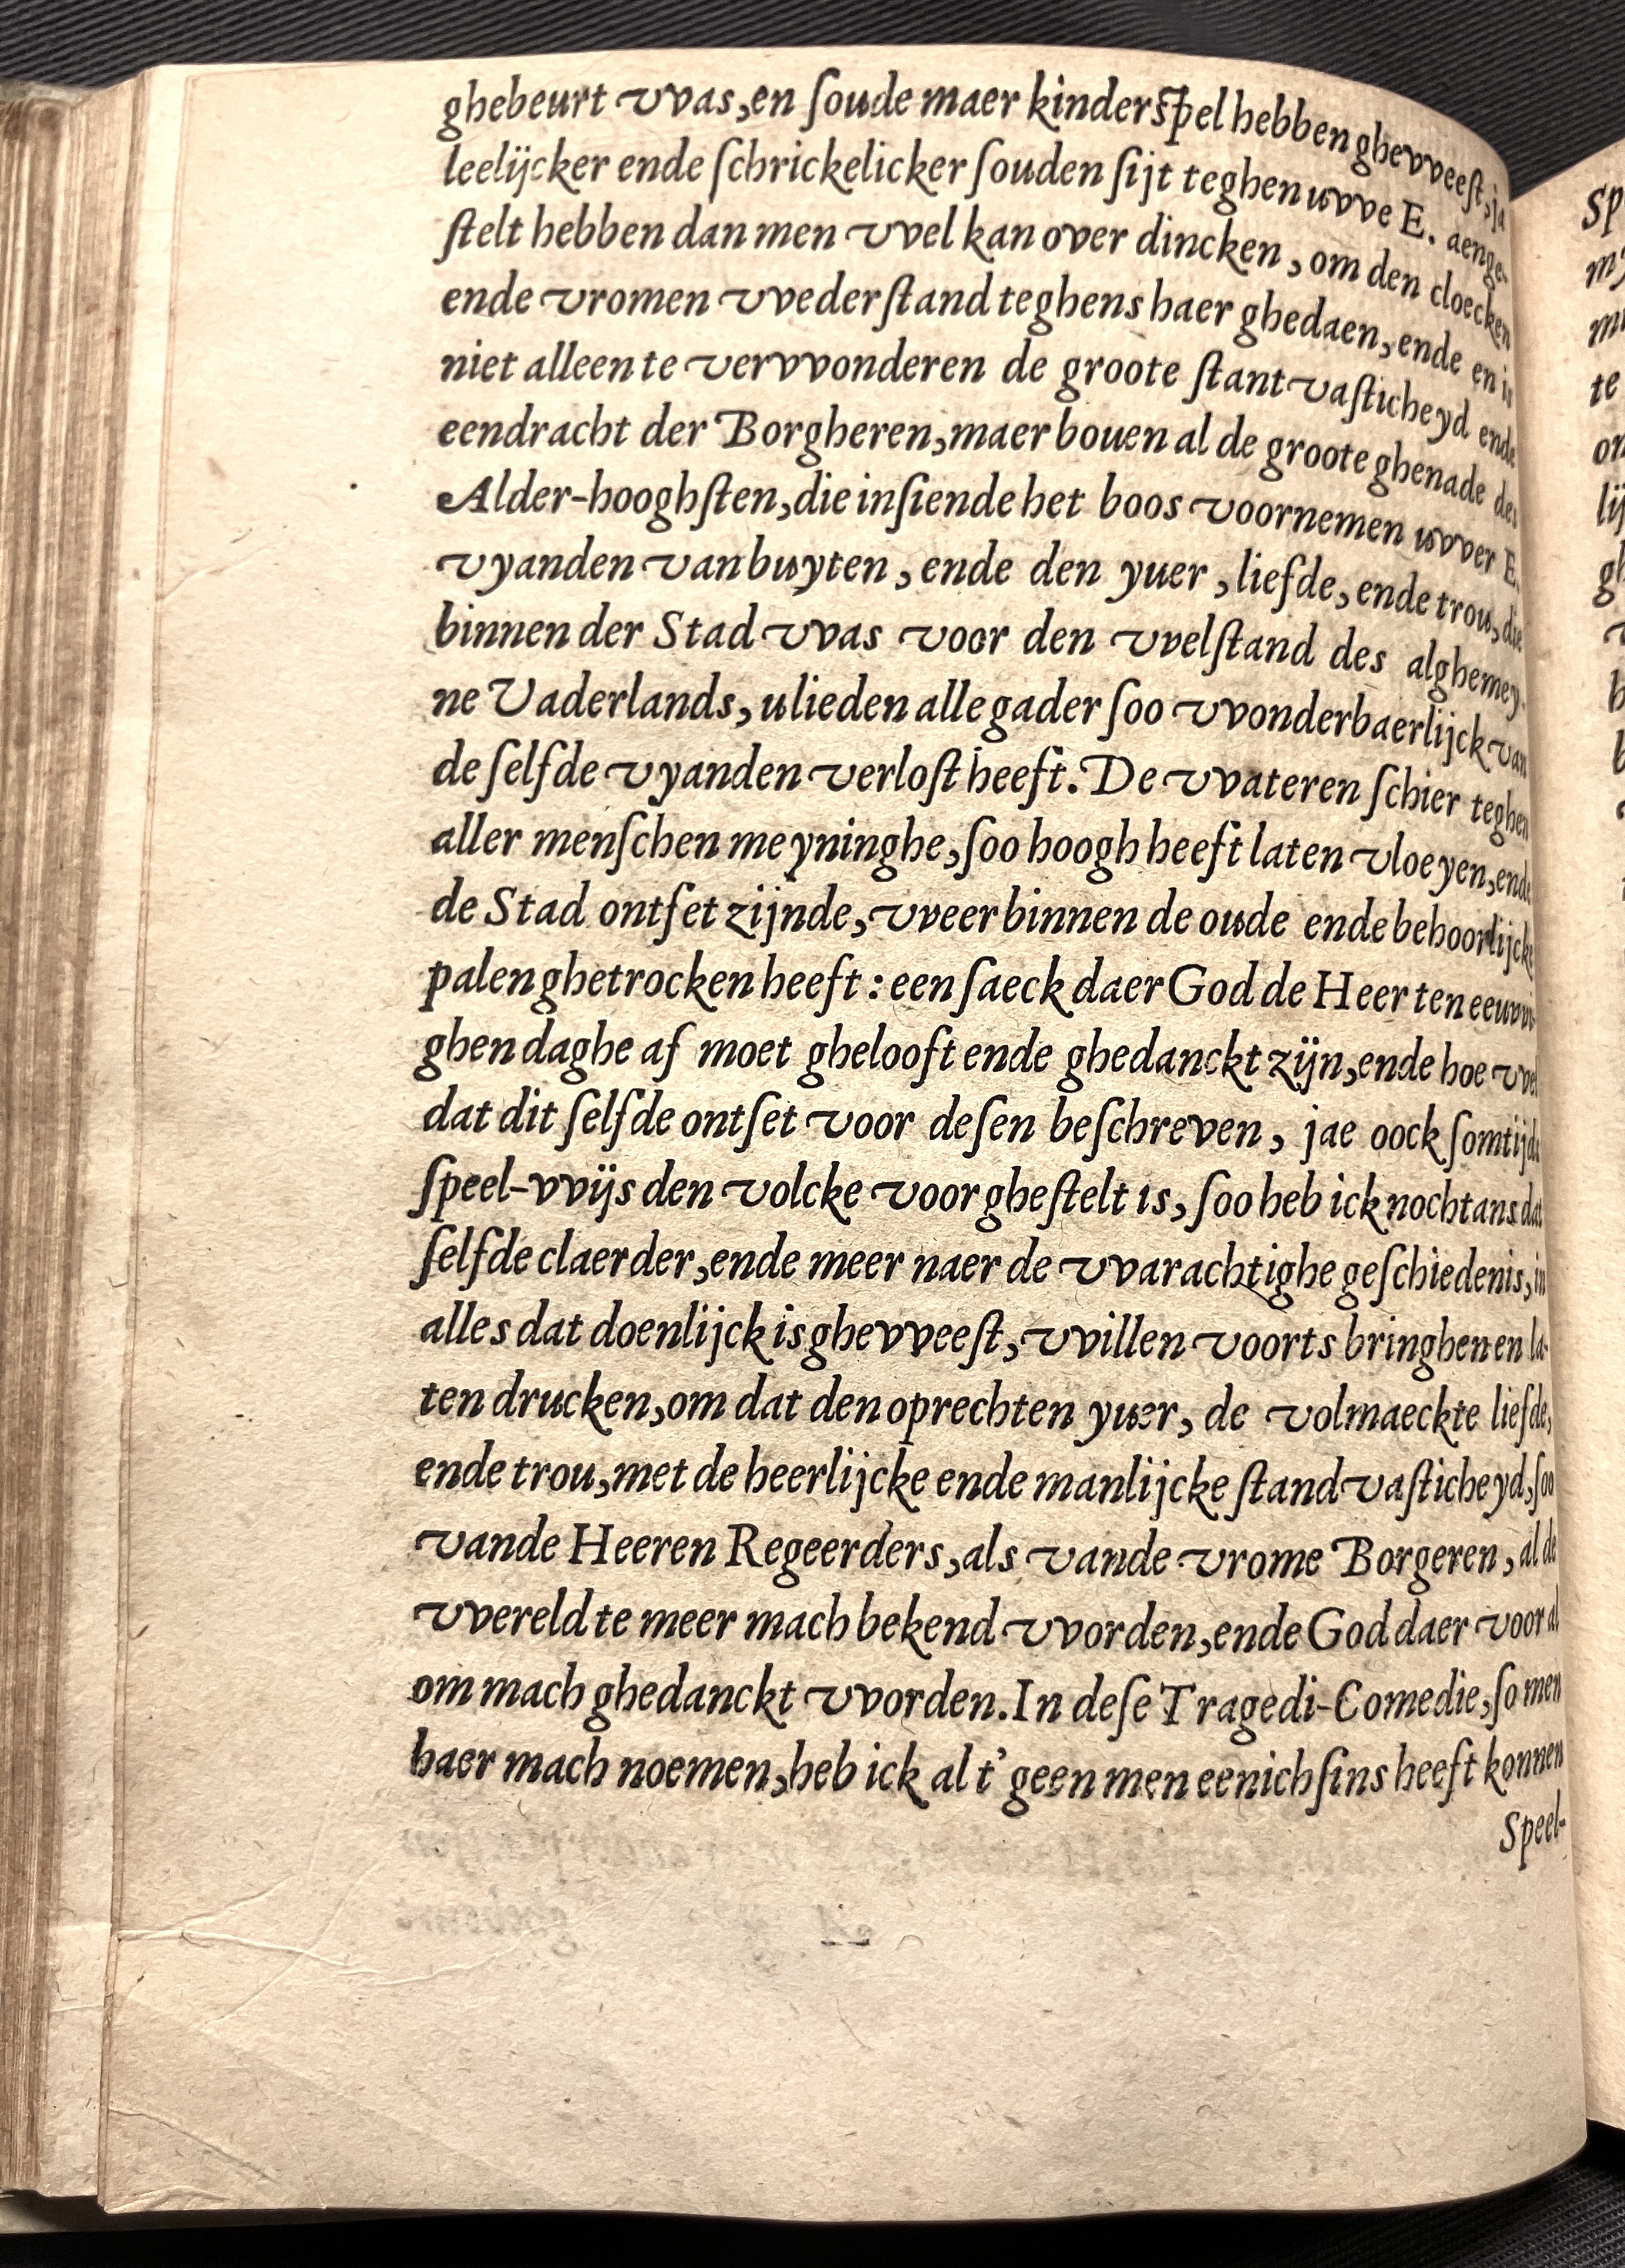 ghebeurt vvas,en ſoude maer kinderſpel hebben ghevveeſt,ja
leelijcker ende ſchrickelicker ſouden ſijt teghen uvve E. aenge-
ſtelt hebben dan men vvel kan over dincken, om den cloecken
ende vromen vvederſtand teghens haer ghedaen, ende en is
niet alleen te vervvonderen de groote ſtantvaſticheyd ende
eendracht der Borgheren,maer bouen al de groote ghenade des
Alder-hooghſten,die inſiende het boos voornemen uvver E.
vyanden van buyten, ende den yuer, liefde, ende trou, die
binnen der Stad vvas voor den vvelſtand des alghemey-
ne Vaderlands, ulieden alle gader ſoo vvonderbaerlijck van
de ſelfde vyanden verloſt heeft. De vvateren ſchier teghen
aller menſchen meyninghe,ſoo hoogh heeft laten vloeyen,ende
de Stad ontſet zijnde, vveer binnen de oude ende behoorlijcke
palen ghetrocken heeft : een ſaeck daer God de Heer ten eeuvvi-
ghen daghe af moet ghelooft ende ghedanckt zijn,ende hoe vvel
dat dit ſelfde ontſet voor deſen beſchreven, jae oock ſomtijds
ſpeel-vvijs den volcke voor gheſtelt is, ſoo heb ick nochtans dat
ſelfde claerder,ende meer naer de vvarachtighe geſchiedenis,in
alles dat doenlijck is ghevveeſt, vvillen voorts bringhen en la-
ten drucken,om dat den oprechten yuer, de volmaeckte liefde,
ende trou,met de heerlijcke ende manlijcke ſtandvaſticheyd,ſoo
vande Heeren Regeerders,als vande vrome Borgeren, al de
vvereld te meer mach bekend vvorden,ende God daer voor al
om mach ghedanckt vvorden. In deſe Tragedi-Comedie,ſo men
haer mach noemen,heb ick al t' geen men eenichſins heeft konnen
Speel-